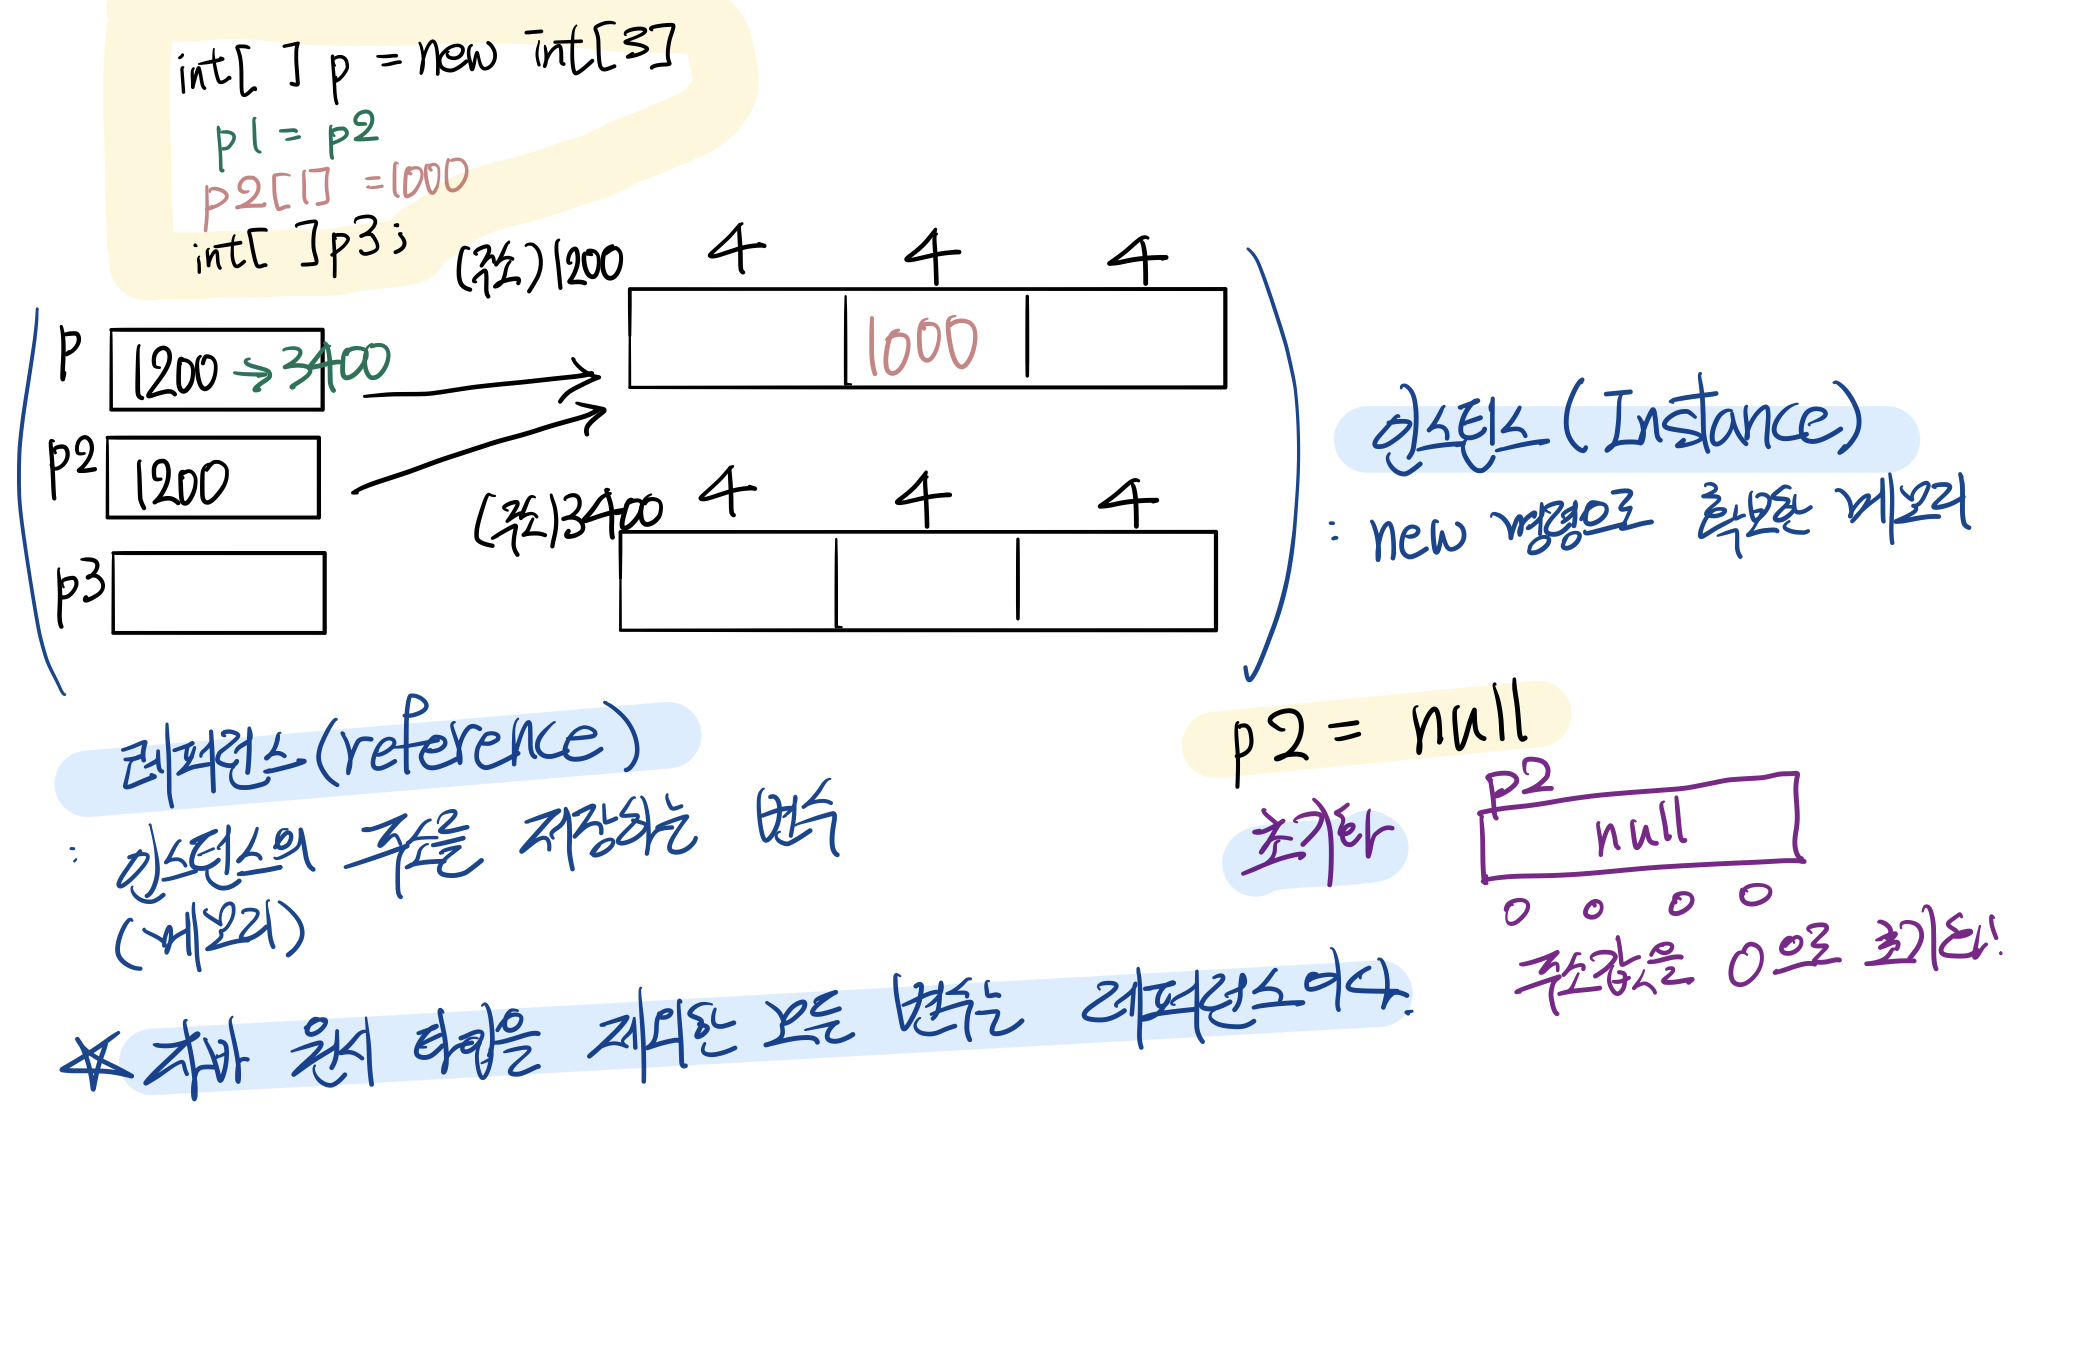 int[ ] p = new int[3]
p1 = p2
p2[1] = 1000
int[ ] p3;
(주소) 1200
4 4 4
p 1200 → 3400
1000
p2 1200
(주소) 3400
4 4 4
p3
인스턴스 (Instance)
: new 명령으로 확보한 메모리
레퍼런스 (reference)
: 인스턴스의 주소를 저장하는 변수
(메모리)
p2 = null
초기화
p2
null
0 0 0 0
주소값은 0으로 초기화!
☆ 자바 원시 타입을 제외한 모든 변수는 레퍼런스이다.